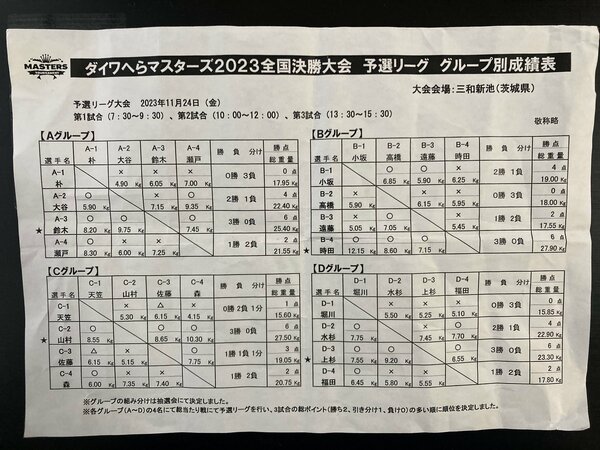 MASTERS
TOURNAMENT
ダイワへらマスターズ2023全国決勝大会 予選リーグ グループ別成績表
大会会場:三和新池(茨城県)
予選リーグ大会 2023年11月24日(金)
第1試合(7:30~9:30)、第2試合(10:00~12:00)、第3試合(13:30~15:30)
敬称略
【Aグループ】
選手名 A-1 朴 A-2 大谷 A-3 鈴木 A-4 瀬戸 勝 負 分け 勝点 総重量
A-1 × × × 0勝 3負 0 点
朴 4.90 Kg 6.05 Kg 7.00 Kg 17.95 Kg
A-2 ○ × ○ 2勝 1負 4 点
大谷 5.90 Kg 7.15 Kg 9.35 Kg 22.40 Kg
A-3 ○ ○ ○ 3勝 0負 6 点
★ 鈴木 8.20 Kg 9.75 Kg 7.45 Kg 25.40 Kg
A-4 ○ × × 1勝 2負 2 点
瀬戸 8.30 Kg 6.00 Kg 7.25 Kg 21.55 Kg
【Bグループ】
選手名 B-1 小坂 B-2 高橋 B-3 遠藤 B-4 時田 勝 負 分け 勝点 総重量
B-1 ○ ○ × 2勝 1負 4 点
小坂 6.85 Kg 5.90 Kg 6.25 Kg 19.00 Kg
B-2 × × × 0勝 3負 0 点
高橋 5.90 Kg 6.15 Kg 5.95 Kg 18.00 Kg
B-3 × ○ × 1勝 2負 2 点
遠藤 5.05 Kg 7.05 Kg 5.45 Kg 17.55 Kg
B-4 ○ ○ ○ 3勝 0負 6 点
★ 時田 12.15 Kg 8.60 Kg 7.15 Kg 27.90 Kg
【Cグループ】
選手名 C-1 天笠 C-2 山村 C-3 佐藤 C-4 森 勝 負 分け 勝点 総重量
C-1 × △ × 0勝 2負 1分 1 点
天笠 5.30 Kg 6.15 Kg 4.15 Kg 15.60 Kg
C-2 ○ ○ ○ 3勝 0負 6 点
★ 山村 8.55 Kg 8.65 Kg 10.30 Kg 27.50 Kg
C-3 △ × ○ 1勝 1負 1分 3 点
佐藤 6.15 Kg 5.15 Kg 7.75 Kg 19.05 Kg
C-4 ○ × × 1勝 2負 2 点
森 6.00 Kg 7.35 Kg 7.40 Kg 20.75 Kg
【Dグループ】
選手名 D-1 堀川 D-2 水杉 D-3 上杉 D-4 福田 勝 負 分け 勝点 総重量
D-1 × × × 0勝 3負 0 点
堀川 5.50 Kg 5.25 Kg 5.10 Kg 15.85 Kg
D-2 ○ × ○ 2勝 1負 4 点
水杉 8.70 Kg 7.50 Kg 6.70 Kg 22.90 Kg
D-3 ○ ○ ○ 3勝 0負 6 点
★ 上杉 7.55 Kg 9.20 Kg 6.55 Kg 23.30 Kg
D-4 ○ × × 1勝 2負 2 点
福田 6.45 Kg 5.80 Kg 5.55 Kg 17.80 Kg
※グループの組み分けは抽選会にて決定しました。
※各グループ(A~D)の4名にて総当たり戦にて予選リーグを行い、3試合の総ポイント(勝ち2、引き分け1、負け0)の多い順に順位を決定しました。